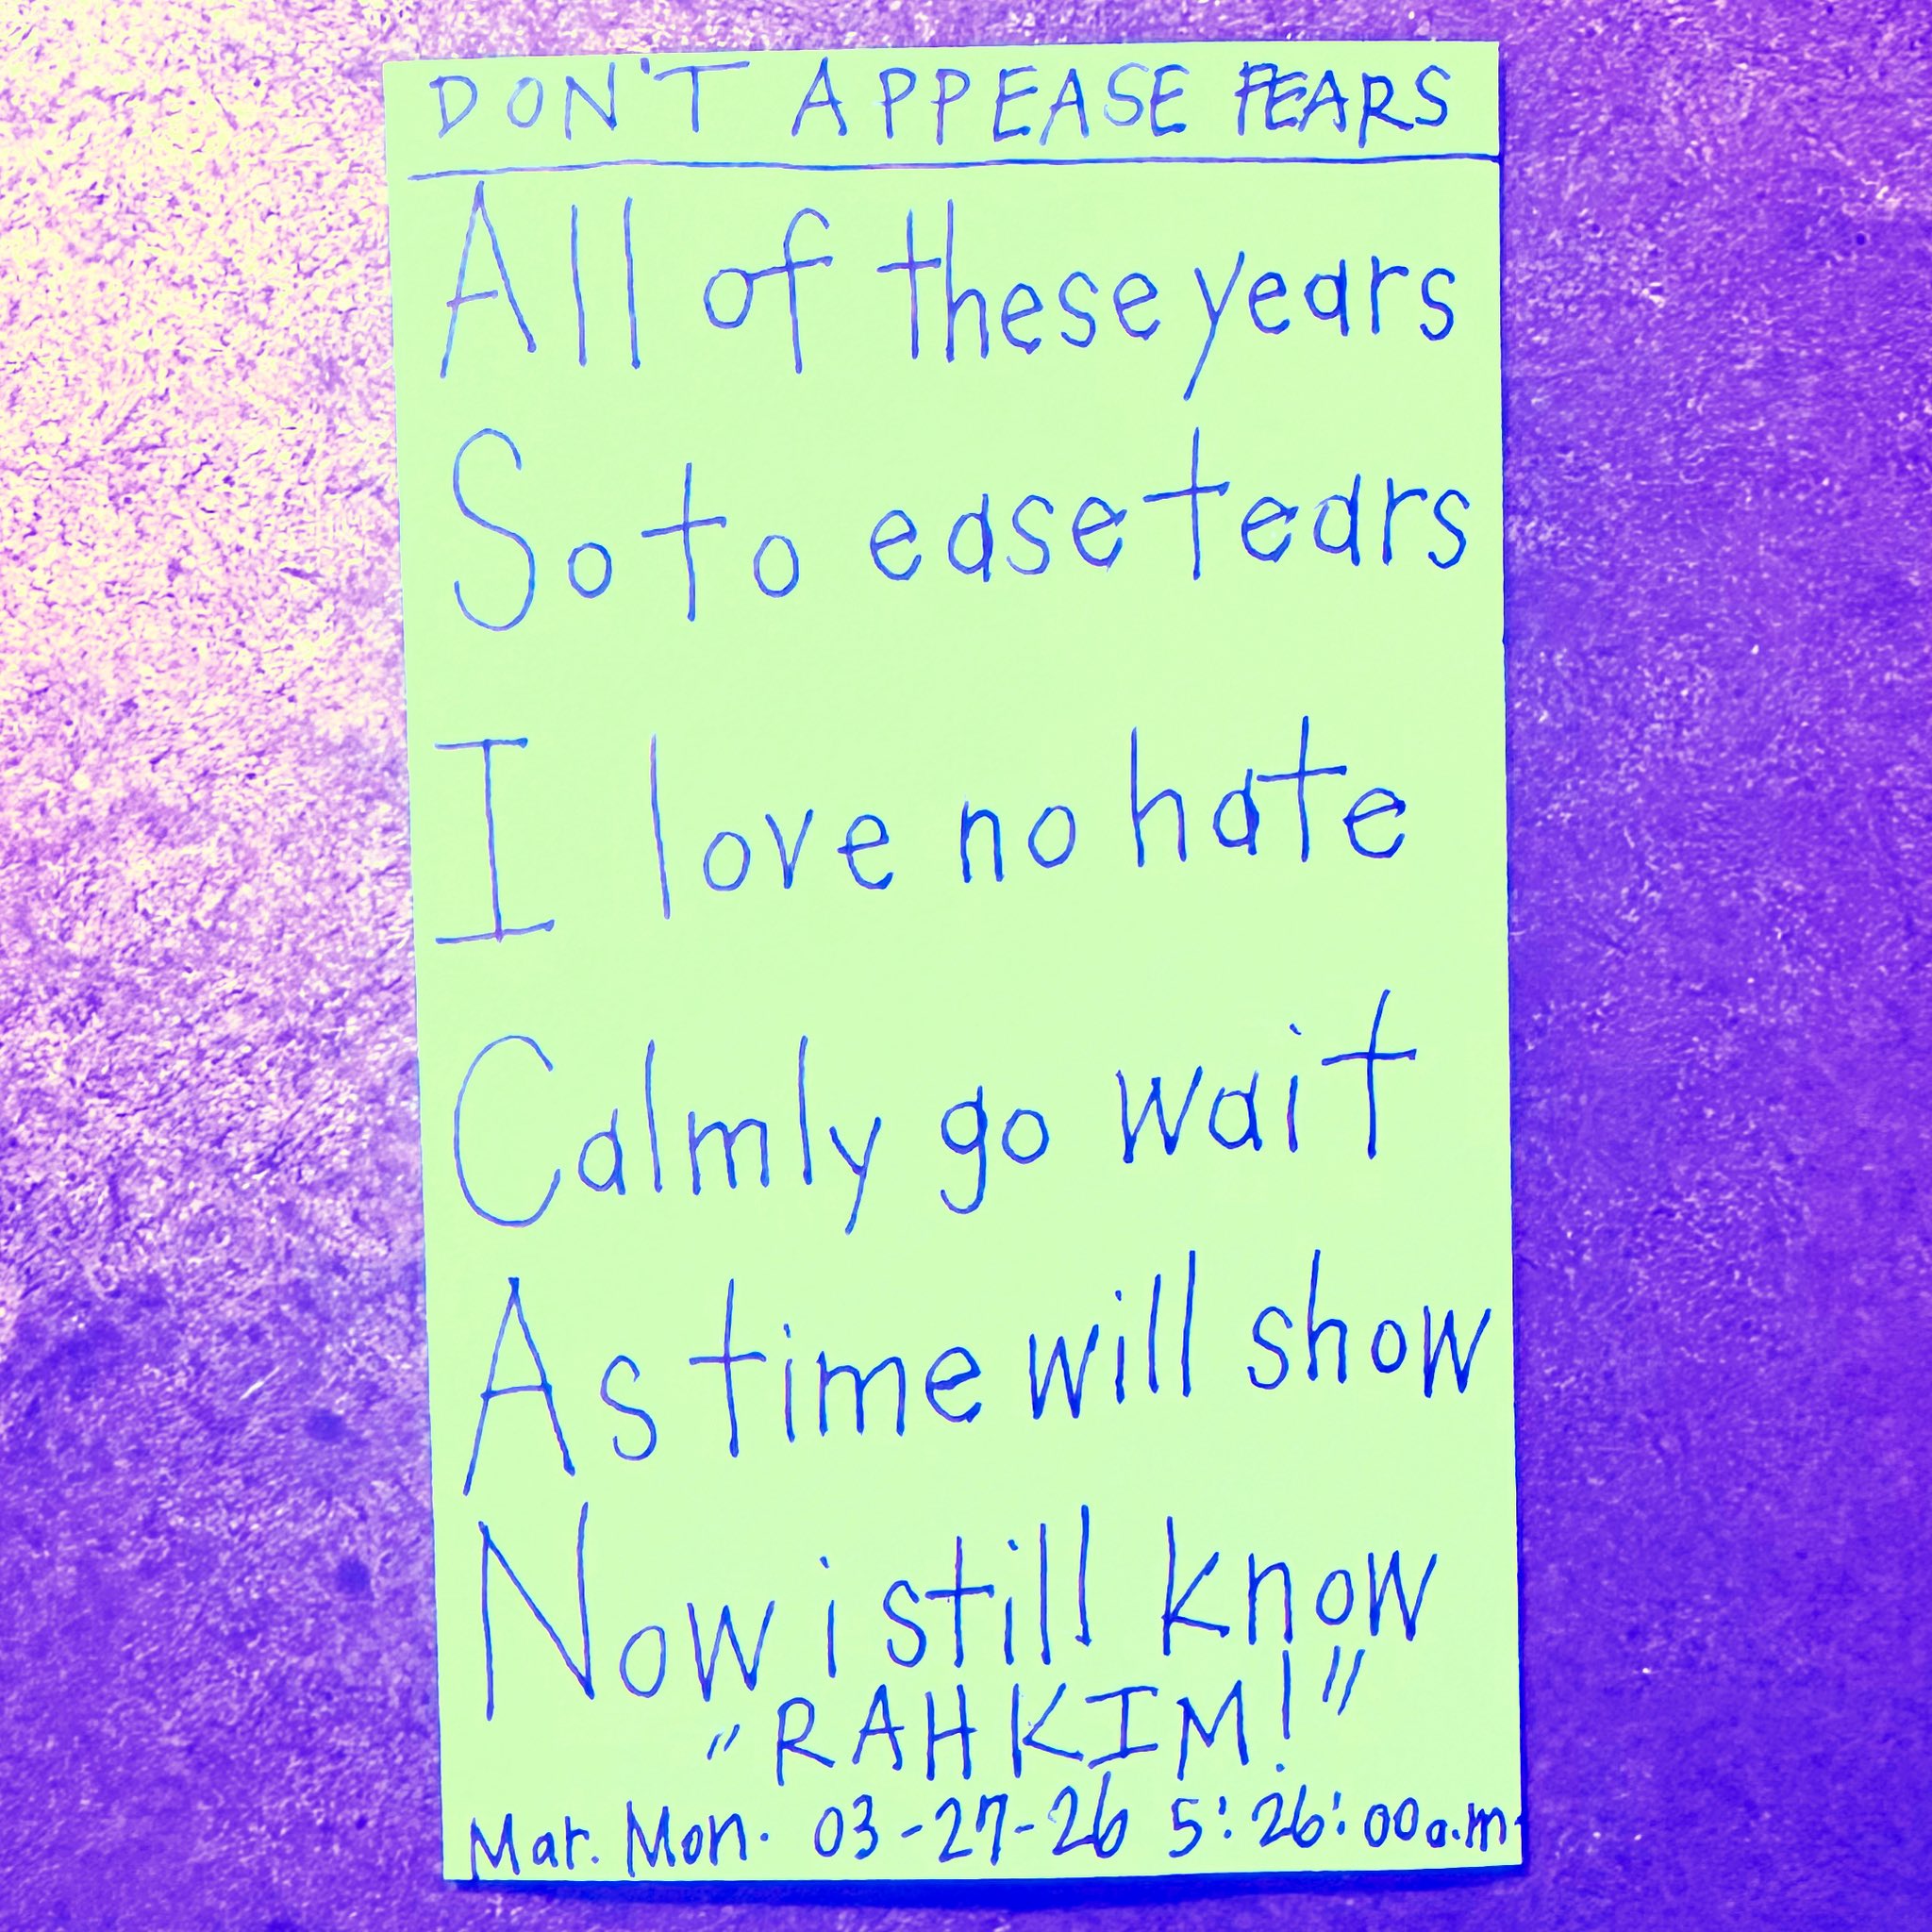 DON'T APPEASE FEARS
All of these years
So to ease tears
I love no hate
Calmly go wait
As time will show
Now i still know
"RAHKIM!"
Mar. Mon. 03-27-26 5:26:00a.m.